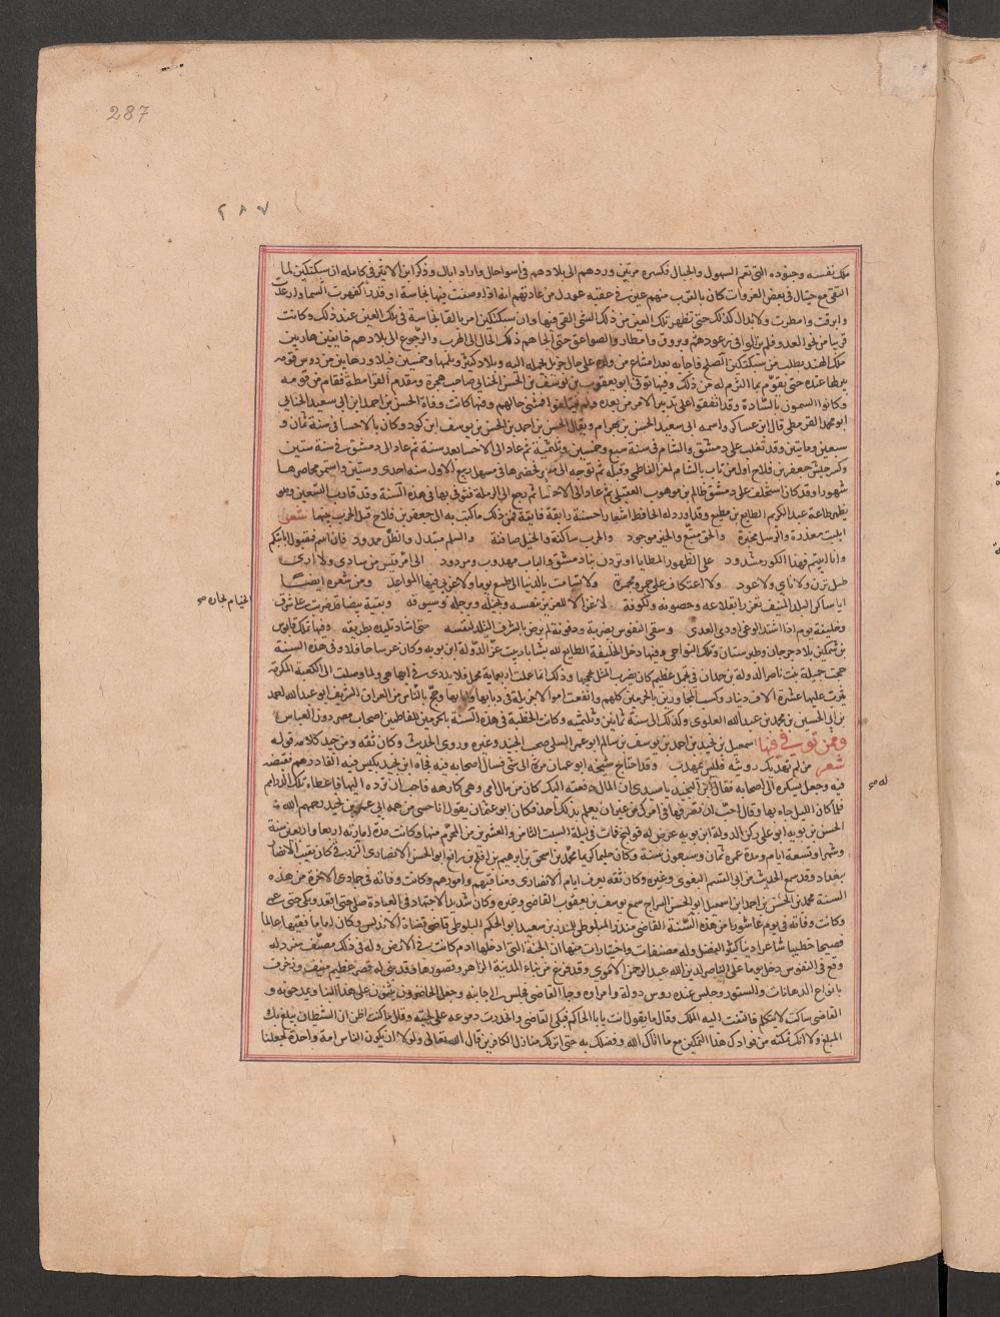 287
٢٨٧
ملك نفسه وجنوده التى تعم السهول والجبال فكسره مرتين وردهم الى بلادهم فى اسوا حال واراد ابال وذكر ابن الاثير فى كامله ان سبكتكين لما
التقى مع جيبال فى بعض الغزوات كان بالقرب منهم عين فى عقبة
وابرقت وامطرت ولا تزال كذلك حتى تطهر تلك العين من ذلك الشى الذى القى فيها وان سبكتكين امر بالقا نجاسة فى تلك العين عند ذلك وكانت
قريبا من نحو العدو فلم يزالوا فى رعود وبروق وامطار والصواعق حتى الجاهم ذلك الحال الى الهرب والرجوع الى بلادهم خايبين هاربين
ملك الهند يطلب من سبكتكين الصلح فاجابه بعد امتناع من ولده على مال جزيل يحمله اليه وبلاد كثيرة يسلمها وخمسين فيلا ورهاين من روس قومه
يتركها عنده حتى يقوم بما التزم له من ذلك وفيها توفى ابو يعقوب بن يوسف بن الحسن الجنابى صاحب هجر ومقدم القرامطة فقام من قومه
وكانوا يسمون بالسادة وقد اتفقوا على تدبير الامر من بعده ولم يختلفوا فمشى حالهم وفيها كانت وفاة الحسن بن احمد ابن ابى سعيد الجنابى
ابو محمد القرمطى قال ابن عساكر واسمه ابى سعيد الحسن بن بهرام ويقال الحسن بن احمد بن الحسن بن يوسف ابن كودر وكان بالاحسا فى سنة ثمان و
سبعين ومايتين وقد تغلب على دمشق والشام فى سنة سبع وخمسين وثلثمية ثم عاد الى الاحسا بعد سنة ثم عاد الى دمشق فى سنة ستين
وكسر جيش جعفر بن فلاح اول من ناب بالشام لمعز الفاطمى وقتله ثم توجه الى مصر فحصرها فى مستهل ربيع الاول سنة احدى وستين واستمر محاصرها
شهورا وقد كان استخلف على دمشق ظالم بن موهوب العقيلى ثم عاد الى الاحسا ثم رجع الى الرملة فتوفى بها فى هذه السنة وقد قارب التسعين وهو
يظهر طاعة عبد الكريم الطايع بن مطيع وقد اورد له الحافظ اشعارا حسنة رايقة فايقة فمن ذلك ما كتب به الى جعفر بن فلاح قبل الحرب بينهما شعر
الكتب معذرة والرسل مخبرة والحق متبع والخير موجود والحرب ساكنة والخيل صافنة والسلم مبتذل والظل ممدود فان انبتم فمقبول انابتكم
وان ابيتم فهذا الكور مشدود على الظهور المطايا او تردن بنا دمشق والباب مهدوم ومردود انى امرؤ ليس من شانى ولا اربى
طبل يرن ولا ناى ولا عود ولا اعتكاف على خمر ومجمرة ولا ابيت بالدنيا
ايا ساكن البلد المنيف تعززا بقلاعه وحصونه وكهوفه لا عز الا للعزيز بنفسه وبخيله وبرجله وسيوفه وبقبة بيضا قد ضربت على شرف
وخليفة يوم اذا اشتد الوغى اردى العدى وسقى النفوس بضربه ودفوفه لم يرض بالشرف التليد لنفسه حتى اشاد تليده بطريفه وفيها تملك قابوس
بن شمكير بلاد جرجان وطبرستان وتلك النواحى وفيها دخل الخليفة الطايع لله بشاباريت عز الدولة ابن بويه وكان عرسا حافلا وفى هذه السنة
حجت جميلة بنت ناصر الدولة بن حمدان فى تجمل عظيم كان يضرب المثل بحجها وذلك انها عملت اربعماية محمل فلا يدرى فى ايها هى ولما وصلت الى الكعبة المكرمة
نثرت عليها عشرة الاف دينار وكست المجاورين بالحرمين كلهم وانفقت اموالا جزيلة فى ذهابها وايابها وحج بالناس من العراق الشريف ابو عبد الله احمد
بن ابى الحسين بن محمد بن عبيد الله العلوى وكذلك الى سنة ثمانين وثلثمية وكانت الخطبة فى هذه السنة بالحرمين للفاطميين اصحاب مصر دون العباس
وممن توفى فيها اسمعيل بن نجيد بن احمد بن يوسف بن سالم ابو عمر السلمى صحب الجنيد وغيره وروى الحديث وكان ثقة ومن جيد كلامه قوله
شعر من لم تهذبك رويته فليس بمهذب وقد احتاج شيخه ابو عثمان مرة الى شى فسال اصحابه فيه فجاه ابن نجيد بكيس فيه الفا درهم فقبضه
فيه وجعل يشكره الى اصحابه فقال ابن نجيد يا سيدى ان المال دفعته اليك كان من مال امى وهى كارهة فاحب ان ترده اليها فاعطاه تلك الدراهم
فلما كان الليل جاه بها وقال احب ان تصرفها فى امرك
الحسن بن بويه ابو على ركن الدولة ابن بويه عرض له قولنج فمات فى ليلة السبت الثامن والعشرين من المحرم منها وكانت مدة امارته اربعا واربعين سنة
وشهرا وتسعة ايام ومدة عمره ثمان وسبعون سنة وكان حليما كريما محمد بن اسحق بن ابرهيم بن افلح بن رافع ابو الحسن الانصارى الزرقى كان نقيب الانصار
ببغداد وقد سمع الحديث من ابى القسم البغوى وغيره وكان ثقة يعرف ايام الانصارى ومناقبهم وامورهم وكانت وفاته فى جمادى الاخرة من هذه
السنة محمد بن الحسن بن احمد ابن اسمعيل ابو الحسن السراج سمع يوسف بن يعقوب القاضى وغيره وكان شديد الاجتهاد فى العبادة صلى حتى اقعد وبكى حتى عمى
وكانت وفاته فى يوم عاشورا من هذه السنة القاضى منذر البلوطى المنذر بن سعيد ابو الحكم البلوطى قاضى قضاة الاندلس وكان اماما فقيها عالما
فصيحا خطيبا شاعرا دينا كثير الفضل وله مصنفات واختيارات منها ان الجنة التى ادخلها ادم كانت فى الارض وله فى ذلك مصنف مفرد له
وقع فى النفوس دخل يوما على الناصر لدين الله عبد الرحمن الاموى وقد فرغ من بناء المدينة الزاهر وقصورها وقد بنى له قصر عظيم منيف وزخرف
بانواع الدهانات والستور وجلس عنده روس دولة وامراه وجا القاضى فجلس الى جانبه وجعل الحاضرون يثنون على هذا البنا ويمدحونه و
القاضى ساكت لا يتكلم فالتفت اليه الملك وقال ما تقول انت يا ابا الحكم فبكى القاضى وانحدرت دموعه على لحيته وقال ما كنت اظن ان الشيطان يبلغ بك
المبلغ ولا انك تمكنه من قوادك هذا التمكين مع ما اتاك الله وفضلك به حتى انزلك منازل الكافرين قال الله تعالى ولولا ان يكون الناس امة واحدة لجعلنا